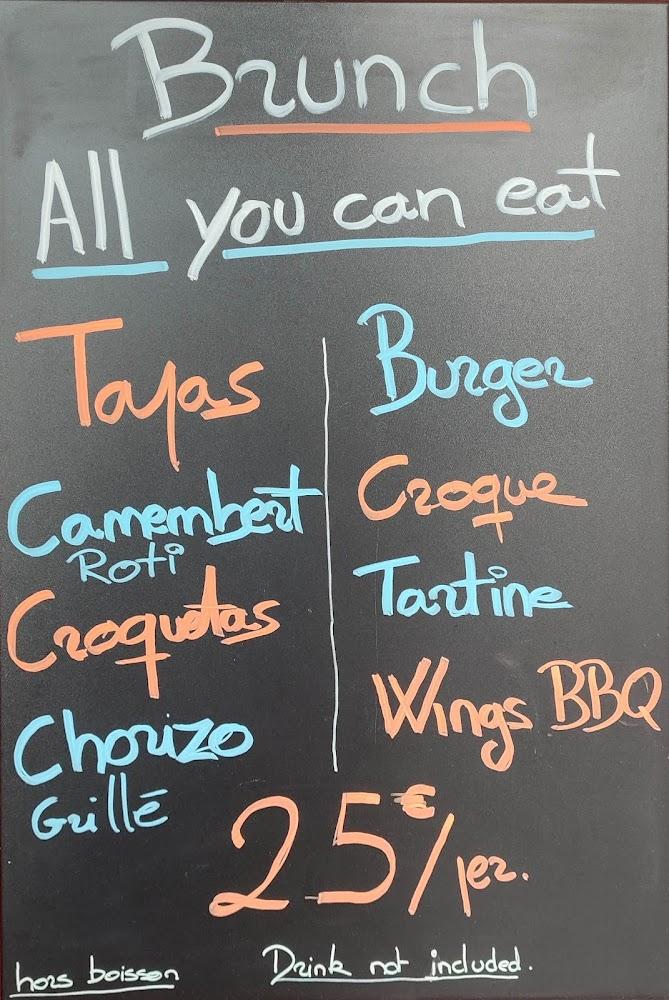 Brunch
All you can eat
Tapas
Camembert
Roti
Croquetas
Chorizo
Grillé
Burger
Croque
Tartine
Wings BBQ
25€/per.
hors boisson
Drink not included.